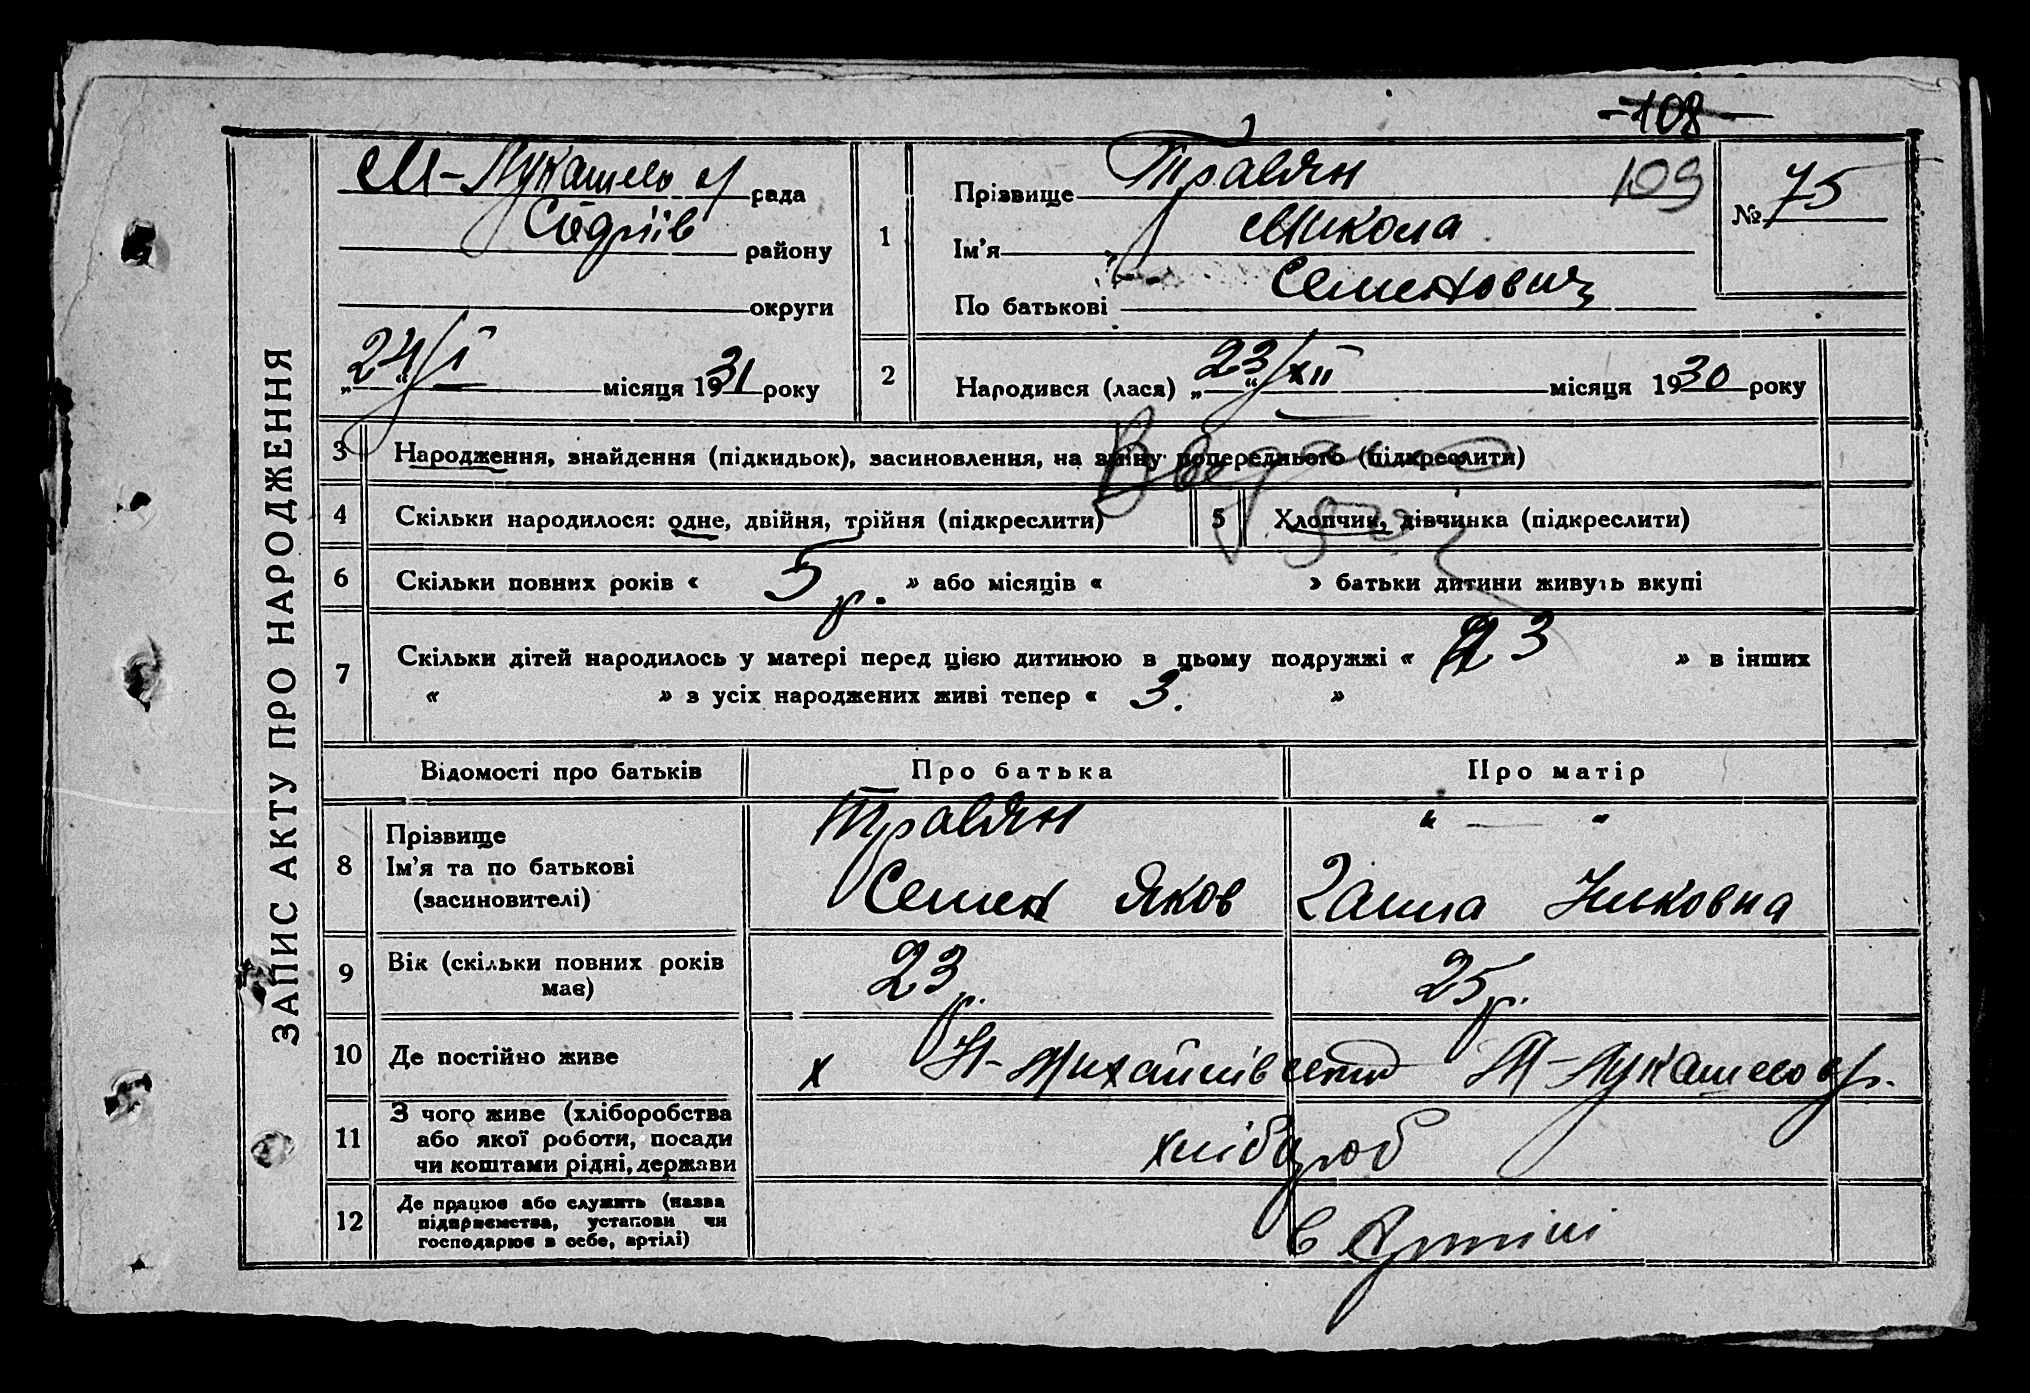 108
ЗАПИС АКТУ ПРО НАРОДЖЕННЯ
М-Лукашево рада
району
округи
„24“/I місяця 1931 року
1
Прізвище Травян 109
Ім'я Микола
По батькові Семенович
№ 75
2 Народився (лася) „23“/XII місяця 1930 року
3 Народження, знайдення (підкидьок), засиновлення, на зміну попереднього (підкреслити)
4 Скільки народилося: одне, двійня, трійня (підкреслити)
5 Хлопчик, дівчинка (підкреслити)
6 Скільки повних років « 5 р. » або місяців « » батьки дитини живуть вкупі
7 Скільки дітей народилось у матері перед цією дитиною в цьому подружжі « 3 » в інших
« » з усіх народжених живі тепер « 3. »
Відомості про батьків Про батька Про матір
8 Прізвище Травян " — "
Ім'я та по батькові
(засиновителі) Семен Яков Ганна
9 Вік (скільки повних років
має) 23 р. 25 р.
10 Де постійно живе х Н-Михайлівский М-Лукашево
11 З чого живе (хліборобства
або якої роботи, посади
чи коштами рідні, держави хлібороб
12 Де працює або служить (назва
підприємства, установи чи
господарює в себе, артілі) в Артілі